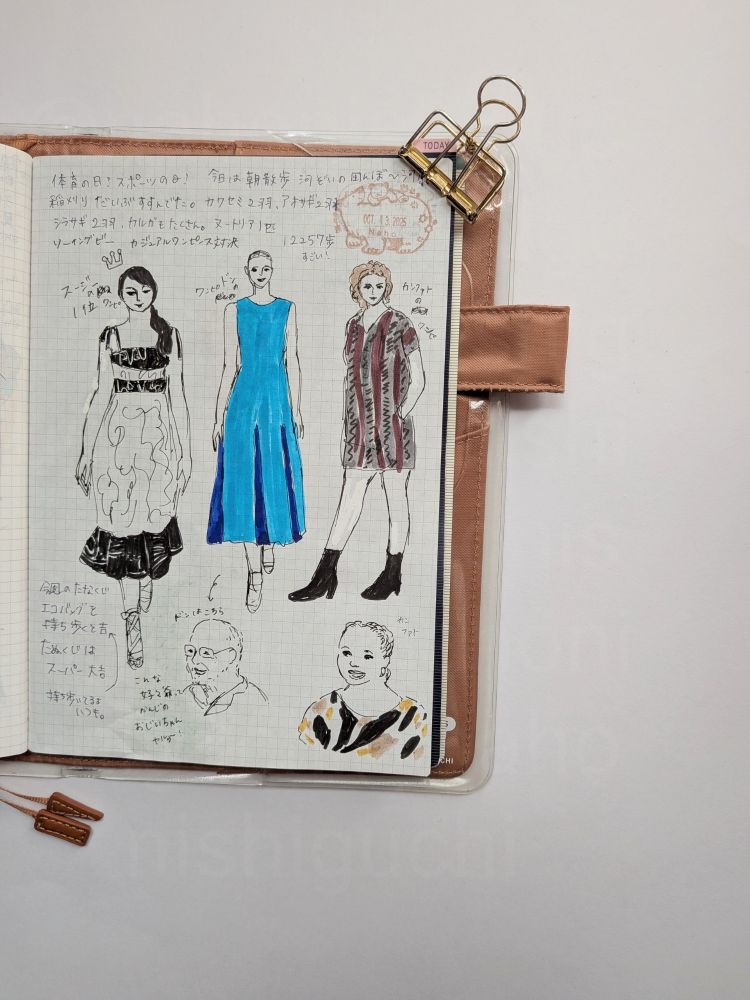 TODAY
体育の日？スポーツの日！ 今日は朝散歩 河ぞいの田んぼ〜
稲刈り だいぶすすんでた。カワセミ2羽、アオサギ2羽
シラサギ2羽、カルガモたくさん。ヌートリア1匹
ソーイングビー カジュアルワンピース対決 12257歩
すごい！
OCT. 13. 2025
スージーの
ワンピ
1位
ドンの
ワンピ
カンファトの
ワンピ
今週のたなくじ
エコバッグを
持ち歩くと吉
たぬくじは
スーパー大吉
持ち歩いてるよ
いつも。
ドンはこちら
こんな
かんじの
おじいちゃん
カン
ファト
nishiguchi